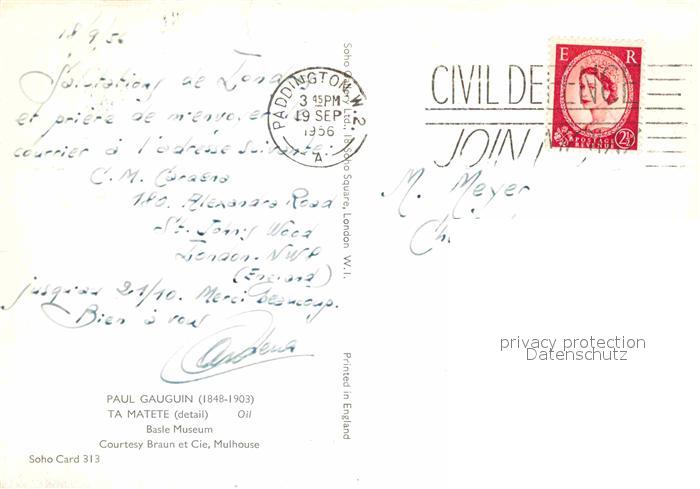 18/9/56
Salutations de Lond
et prière de m'envoyer
courrier à l'adresse suivante:
C. M.
180. Alexandra Road
St. John's Wood
London. NW8
(England)
jusqu'au 21/10. Merci beaucoup.
Bien à vous
PAUL GAUGUIN (1848-1903)
TA MATETE (detail) Oil
Basle Museum
Courtesy Braun et Cie, Mulhouse
Soho Card 313
Soho Gallery Ltd., 18 Soho Square, London W.1.
Printed in England
PADDINGTON. W.2.
3 45 PM
19 SEP
1956
A
CIVIL DEFENCE
JOIN
E R
POSTAGE REVENUE
2½
M. Meyer
Ch.
privacy protection
Datenschutz